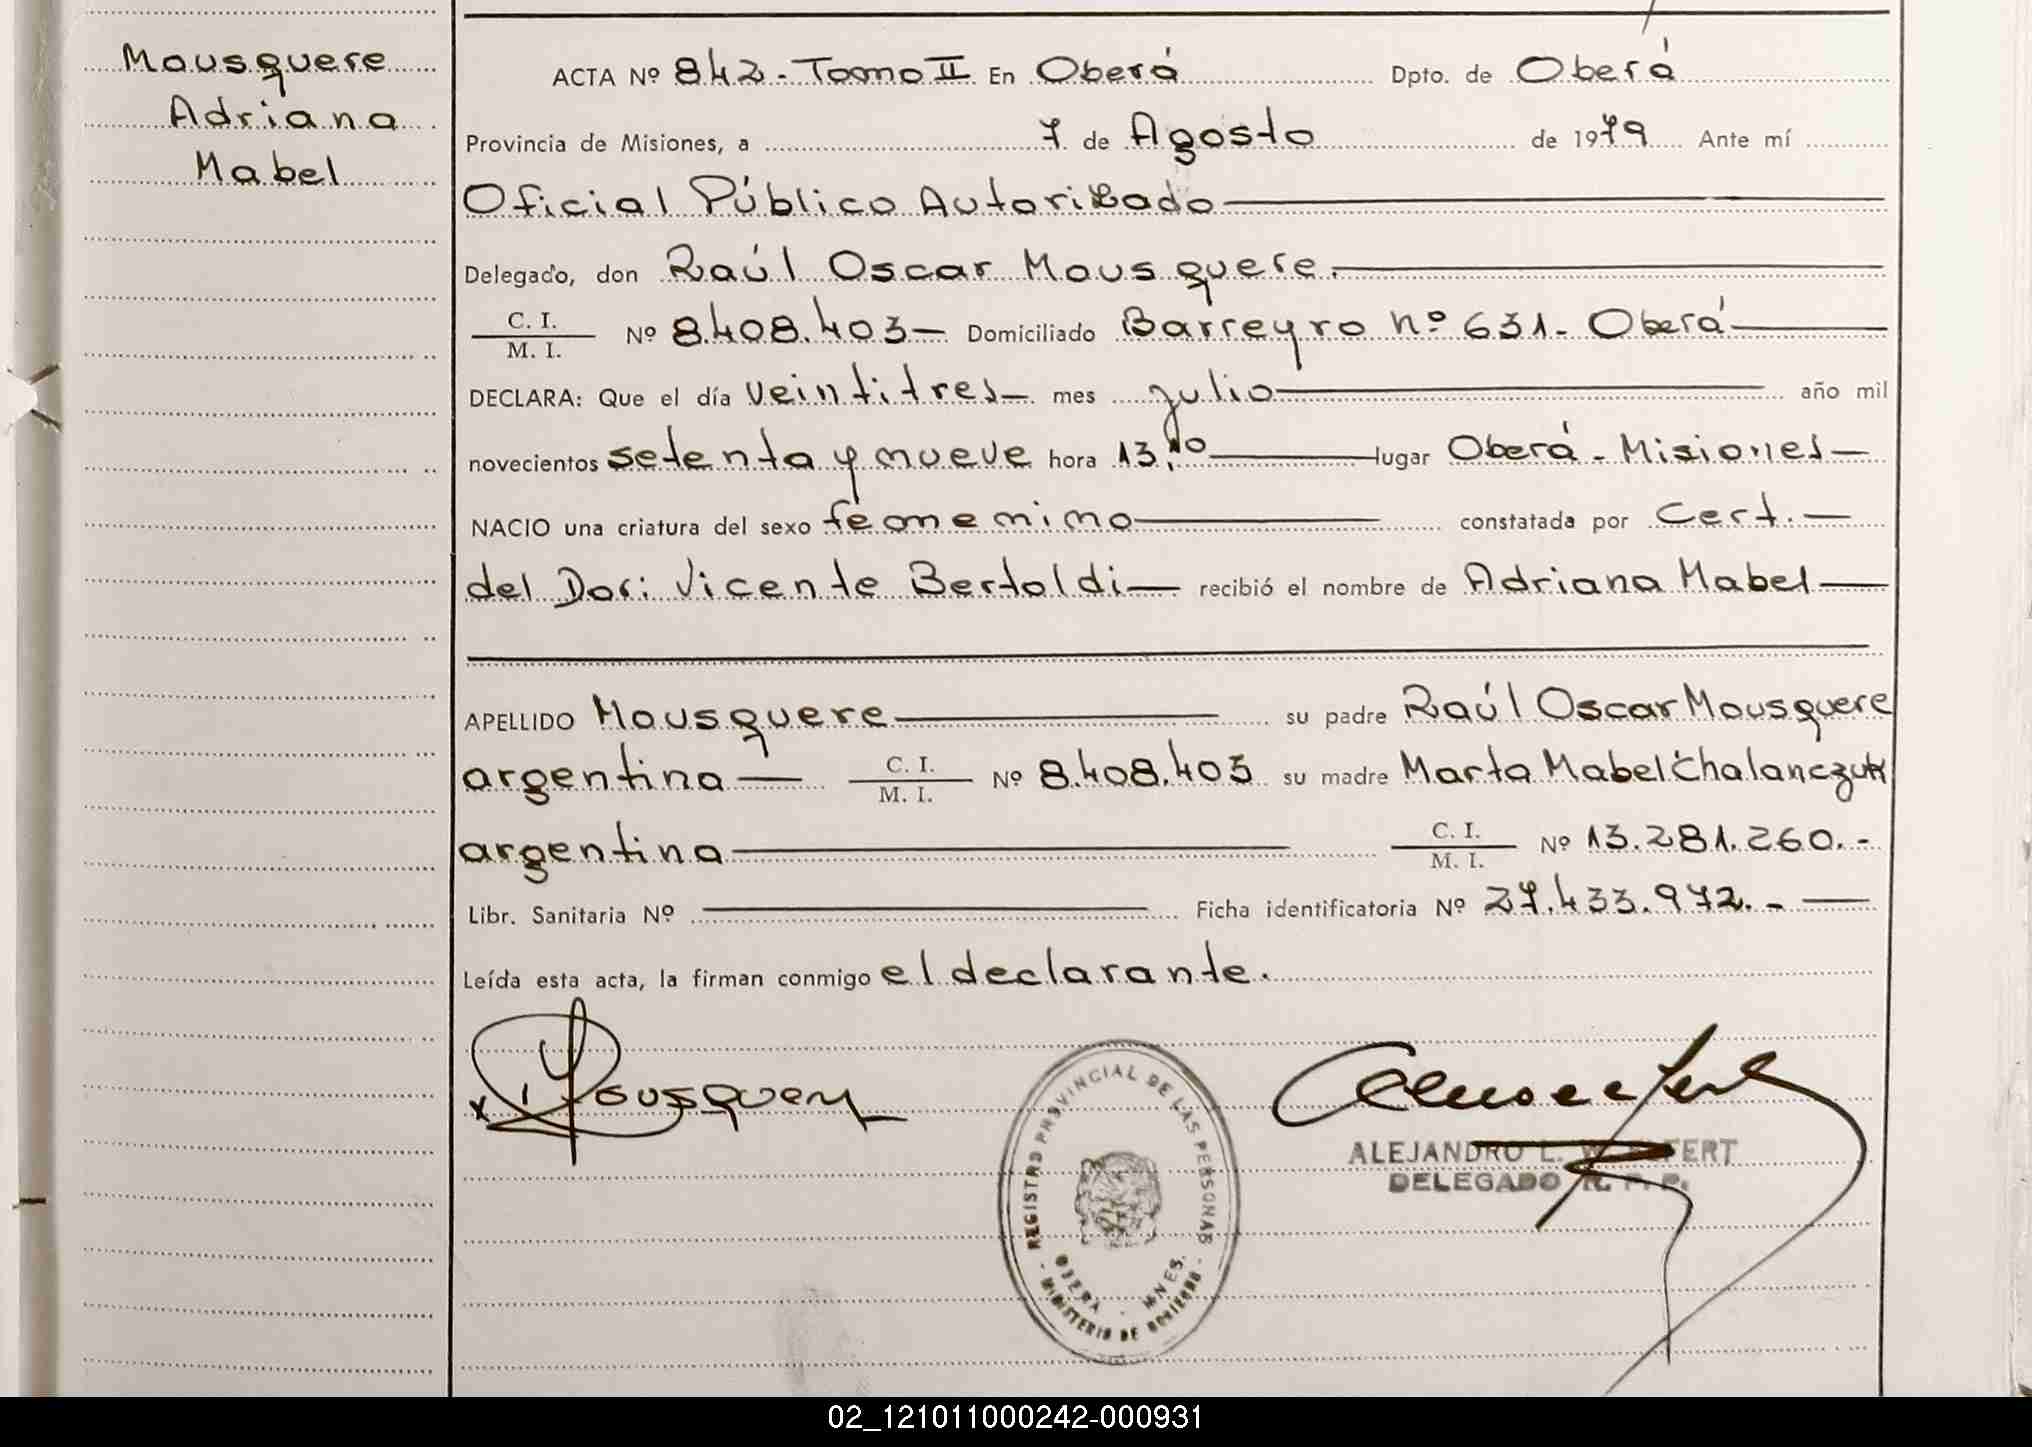 Mousquere
Adriana
Mabel
ACTA Nº 842.- Tomo II En Oberá Dpto. de Oberá
Provincia de Misiones, a 7 de Agosto de 1979 Ante mí
Oficial Público Autorizado
Delegado, don Raúl Oscar Mousquere.
C. I.
M. I. Nº 8.408.403- Domiciliado Barreyro nº 631.- Oberá
DECLARA: Que el día veintitres mes julio año mil
novecientos setenta y nueve hora 13, lugar Oberá - Misiones
NACIO una criatura del sexo femenino constatada por Cert.
del Vicente Bertoldi recibió el nombre de Adriana Mabel
APELLIDO Mousquere su padre Raúl Oscar Mousquere
argentina C. I.
M. I. Nº 8.408.403 su madre Marta Mabel Chalanczuk
argentina C. I.
M. I. Nº 13.281.260.-
Libr. Sanitaria Nº Ficha identificatoria Nº 27.433.972.-
Leída esta acta, la firman conmigo el declarante.
REGISTRO PROVINCIAL DE LAS PERSONAS
OBERA - MNES.
- MINISTERIO DE GOBIERNO -
ALEJANDRO L.
DELEGADO R. P. P.
02_121011000242-000931